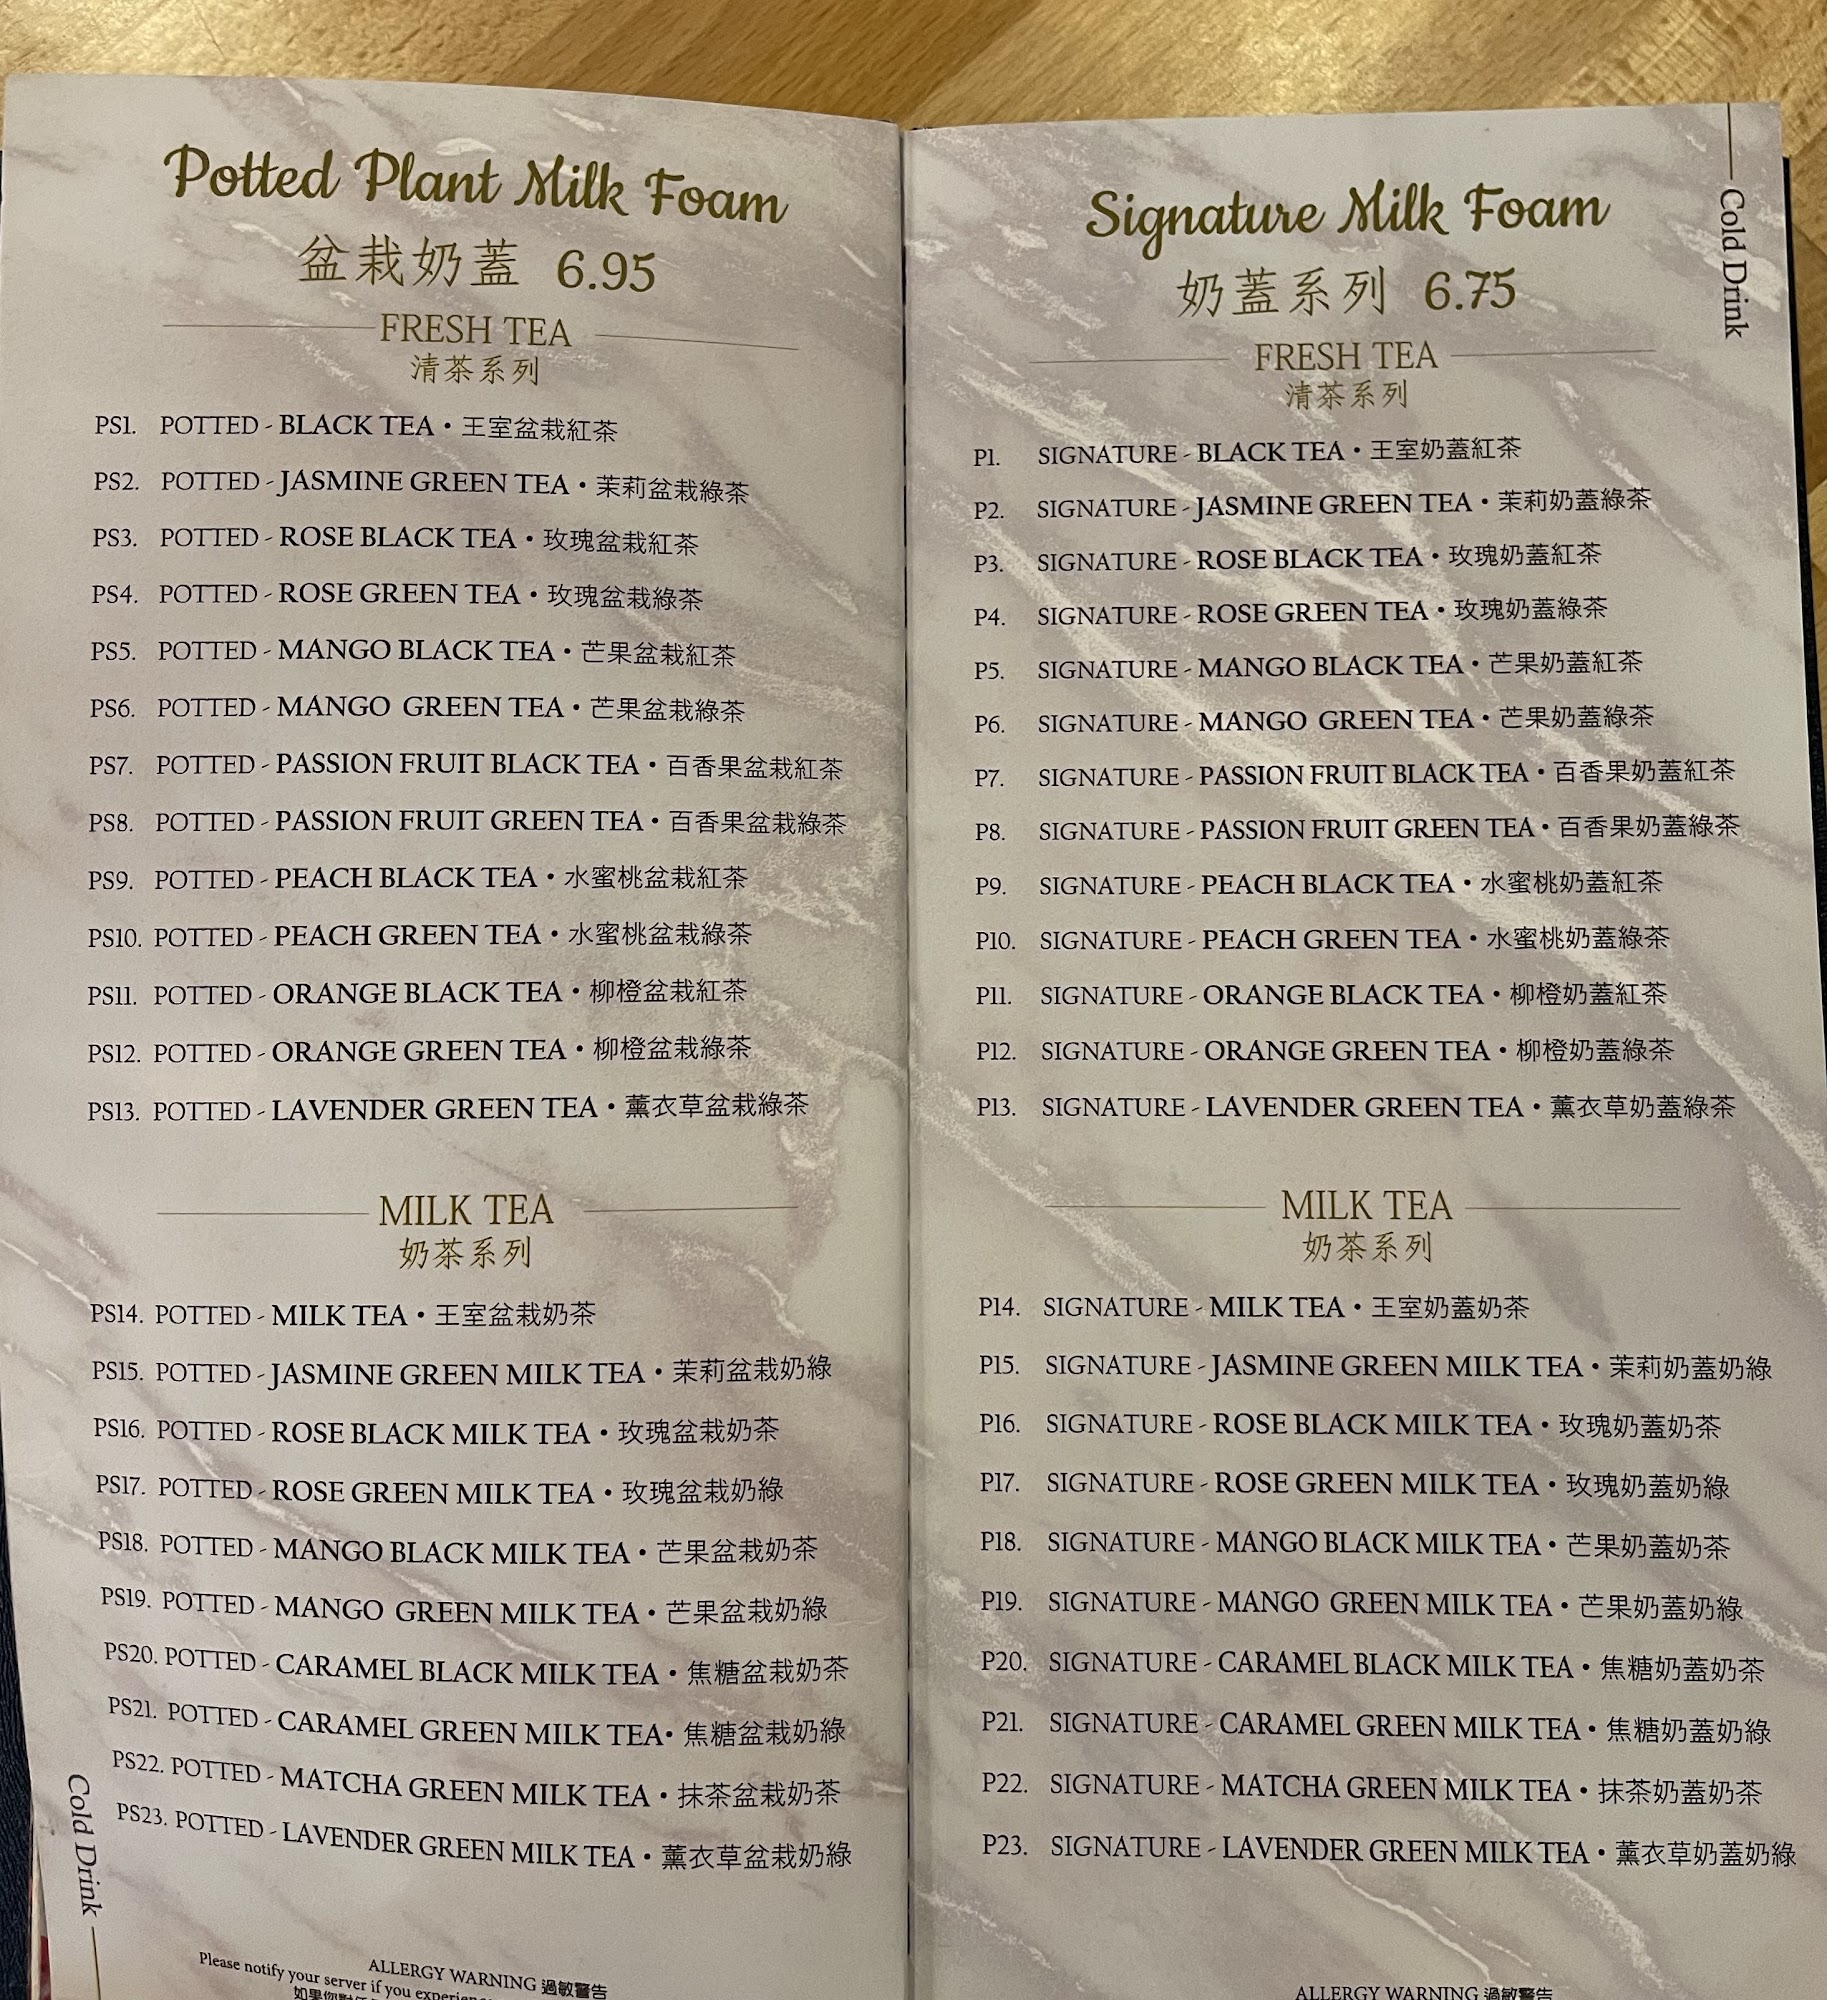 Potted Plant Milk Foam
盆栽奶蓋 6.95
FRESH TEA
清茶系列
PS1. POTTED - BLACK TEA • 王室盆栽紅茶
PS2. POTTED - JASMINE GREEN TEA • 茉莉盆栽綠茶
PS3. POTTED - ROSE BLACK TEA • 玫瑰盆栽紅茶
PS4. POTTED - ROSE GREEN TEA • 玫瑰盆栽綠茶
PS5. POTTED - MANGO BLACK TEA • 芒果盆栽紅茶
PS6. POTTED - MANGO GREEN TEA • 芒果盆栽綠茶
PS7. POTTED - PASSION FRUIT BLACK TEA • 百香果盆栽紅茶
PS8. POTTED - PASSION FRUIT GREEN TEA • 百香果盆栽綠茶
PS9. POTTED - PEACH BLACK TEA • 水蜜桃盆栽紅茶
PS10. POTTED - PEACH GREEN TEA • 水蜜桃盆栽綠茶
PS11. POTTED - ORANGE BLACK TEA • 柳橙盆栽紅茶
PS12. POTTED - ORANGE GREEN TEA • 柳橙盆栽綠茶
PS13. POTTED - LAVENDER GREEN TEA • 薰衣草盆栽綠茶
MILK TEA
奶茶系列
PS14. POTTED - MILK TEA • 王室盆栽奶茶
PS15. POTTED - JASMINE GREEN MILK TEA • 茉莉盆栽奶綠
PS16. POTTED - ROSE BLACK MILK TEA • 玫瑰盆栽奶茶
PS17. POTTED - ROSE GREEN MILK TEA • 玫瑰盆栽奶綠
PS18. POTTED - MANGO BLACK MILK TEA • 芒果盆栽奶茶
PS19. POTTED - MANGO GREEN MILK TEA • 芒果盆栽奶綠
PS20. POTTED - CARAMEL BLACK MILK TEA • 焦糖盆栽奶茶
PS21. POTTED - CARAMEL GREEN MILK TEA • 焦糖盆栽奶綠
PS22. POTTED - MATCHA GREEN MILK TEA • 抹茶盆栽奶茶
PS23. POTTED - LAVENDER GREEN MILK TEA • 薰衣草盆栽奶綠
Cold Drink
ALLERGY WARNING 過敏警告
Please notify your server if you
如果您對
Signature Milk Foam
奶蓋系列 6.75
Cold Drink
FRESH TEA
清茶系列
P1. SIGNATURE - BLACK TEA • 王室奶蓋紅茶
P2. SIGNATURE - JASMINE GREEN TEA • 茉莉奶蓋綠茶
P3. SIGNATURE - ROSE BLACK TEA • 玫瑰奶蓋紅茶
P4. SIGNATURE - ROSE GREEN TEA • 玫瑰奶蓋綠茶
P5. SIGNATURE - MANGO BLACK TEA • 芒果奶蓋紅茶
P6. SIGNATURE - MANGO GREEN TEA • 芒果奶蓋綠茶
P7. SIGNATURE - PASSION FRUIT BLACK TEA • 百香果奶蓋紅茶
P8. SIGNATURE - PASSION FRUIT GREEN TEA • 百香果奶蓋綠茶
P9. SIGNATURE - PEACH BLACK TEA • 水蜜桃奶蓋紅茶
P10. SIGNATURE - PEACH GREEN TEA • 水蜜桃奶蓋綠茶
P11. SIGNATURE - ORANGE BLACK TEA • 柳橙奶蓋紅茶
P12. SIGNATURE - ORANGE GREEN TEA • 柳橙奶蓋綠茶
P13. SIGNATURE - LAVENDER GREEN TEA • 薰衣草奶蓋綠茶
MILK TEA
奶茶系列
P14. SIGNATURE - MILK TEA • 王室奶蓋奶茶
P15. SIGNATURE - JASMINE GREEN MILK TEA • 茉莉奶蓋奶綠
P16. SIGNATURE - ROSE BLACK MILK TEA • 玫瑰奶蓋奶茶
P17. SIGNATURE - ROSE GREEN MILK TEA • 玫瑰奶蓋奶綠
P18. SIGNATURE - MANGO BLACK MILK TEA • 芒果奶蓋奶茶
P19. SIGNATURE - MANGO GREEN MILK TEA • 芒果奶蓋奶綠
P20. SIGNATURE - CARAMEL BLACK MILK TEA • 焦糖奶蓋奶茶
P21. SIGNATURE - CARAMEL GREEN MILK TEA • 焦糖奶蓋奶綠
P22. SIGNATURE - MATCHA GREEN MILK TEA • 抹茶奶蓋奶茶
P23. SIGNATURE - LAVENDER GREEN MILK TEA • 薰衣草奶蓋奶綠
ALLERGY WARNING 過敏警告